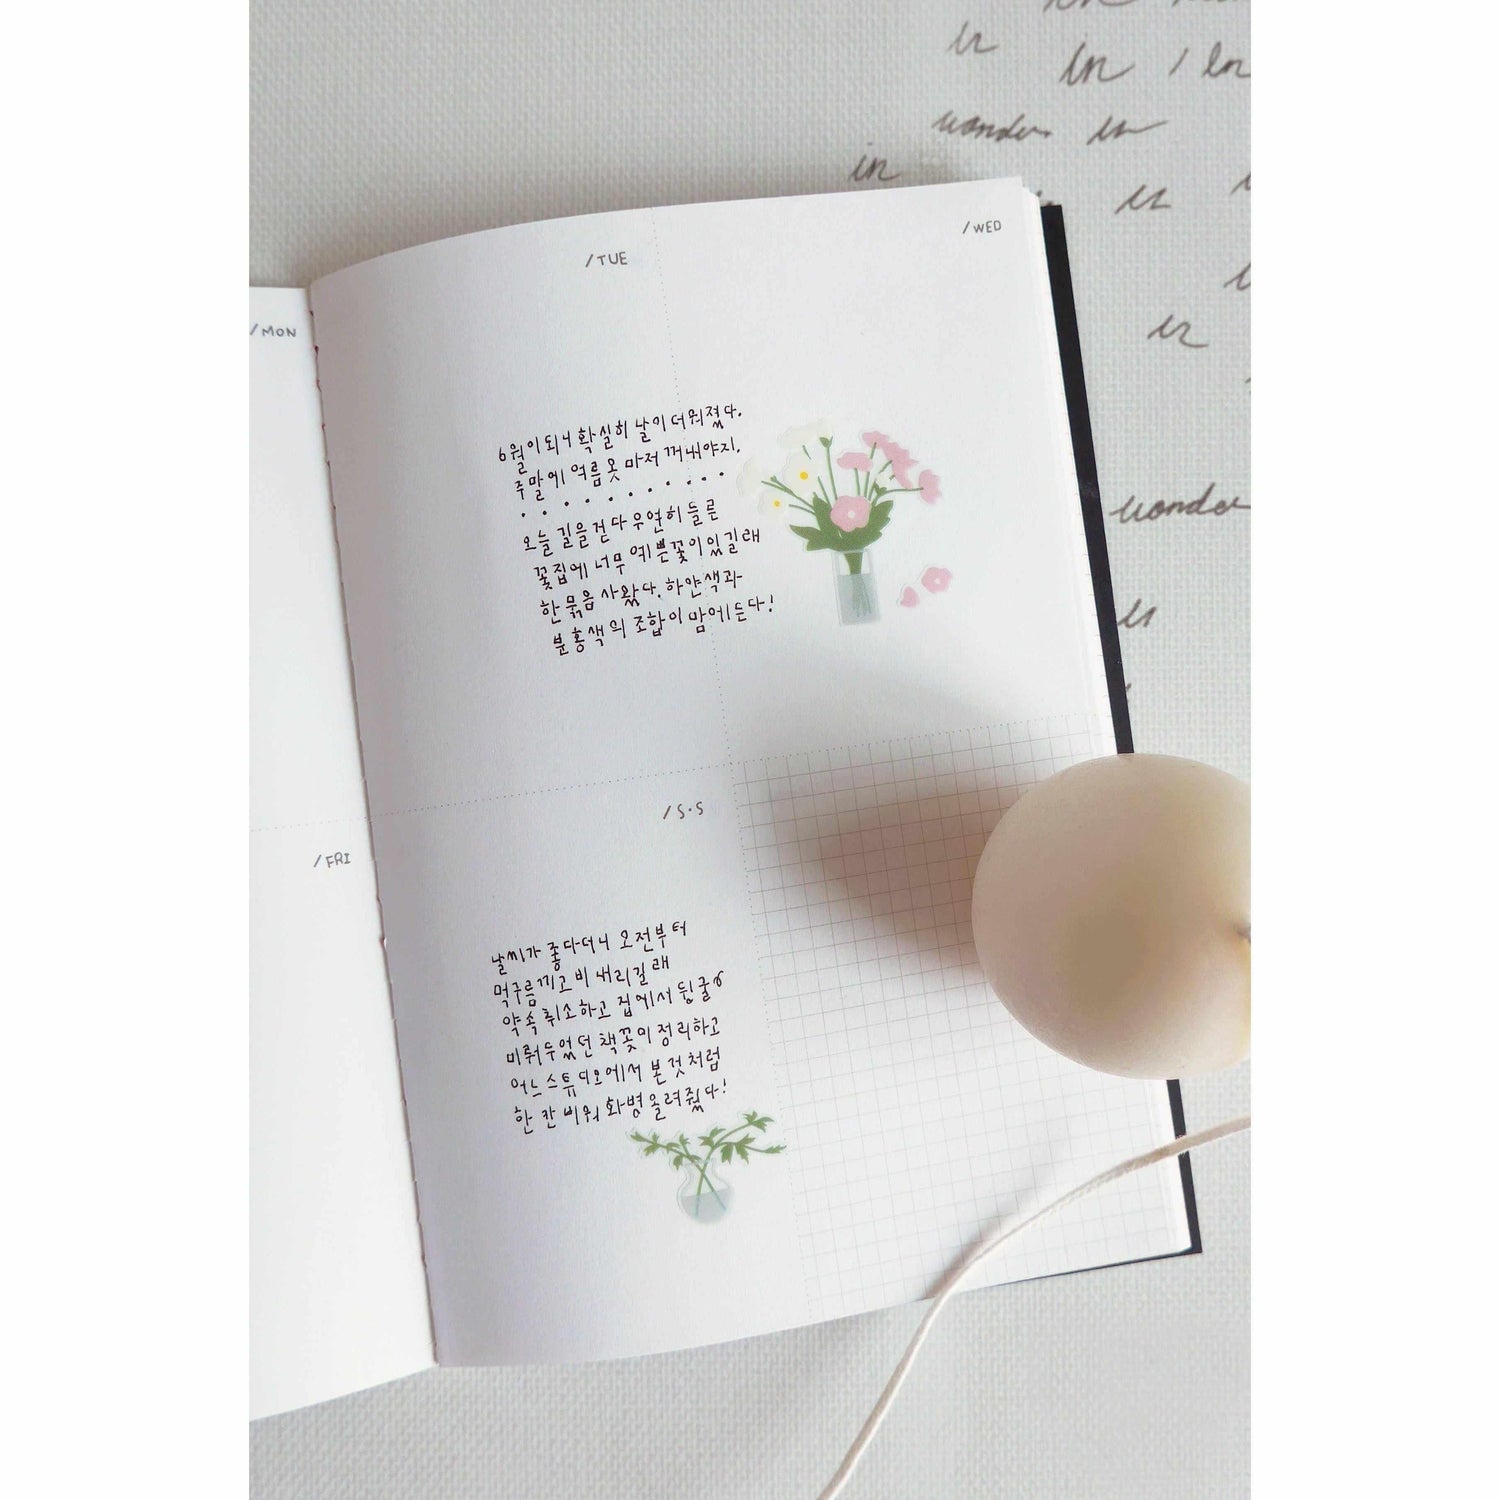 /MON
/TUE
/WED
6월이 되니 확실히 날이 더워졌다.
주말에 여름 옷 마저 꺼내야지.
오늘 길을 걷다 우연히 들른
꽃집에 너무 예쁜 꽃이 있길래
한 묶음 사왔다. 하얀색과
분홍색의 조합이 맘에 든다!
/FRI
/S·S
날씨가 좋다더니 오전부터
먹구름 끼고 비 내리길래
약속 취소하고 집에서 뒹굴~
미뤄두었던 책꽂이 정리하고
어느 스튜디오에서 본 것처럼
한 칸 비워 화병 올려줬다!
in
er
in / in
wonder er
in
er
er
wonder
er